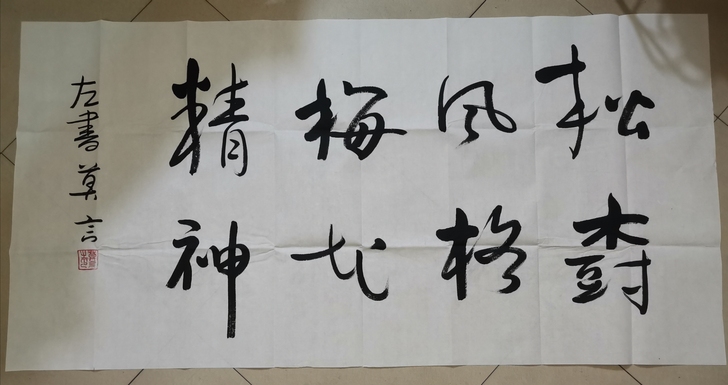 松樹
風格
梅花
精神
左書莫言